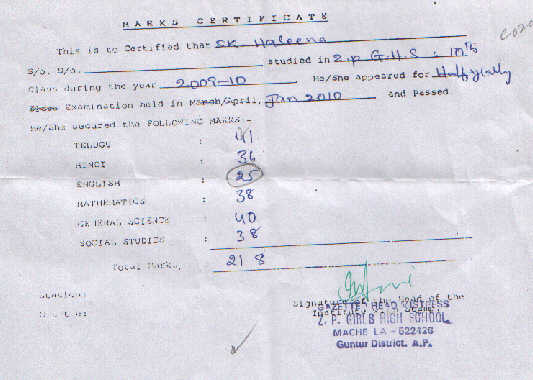 MARKS CERTIFICATE
This is to Certified that SK. Haleena
S/o. D/o. studied in Z.P G.H.S : 10th
Class during the year 2009-10 He/she appeared for Half yearly
Examination held in March/April, Jan 2010 and Passed
He/she secured the FOLLOWING MARKS:-
TELUGU : 41
HINDI : 36
ENGLISH : 25
MATHEMATICS : 38
GENERAL SCIENCE : 40
SOCIAL STUDIES : 38
Total Marks, 218
Station:
Signature of the Head of the
GAZETTED HEAD MISTRESS
Z. P. GIRLS HIGH SCHOOL
MACHERLA - 522426
Guntur District. A.P.